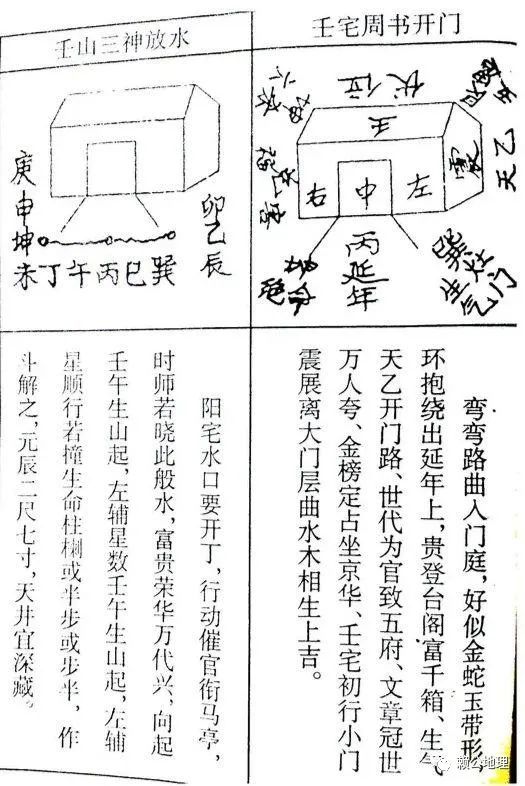 壬宅周书开门
伏位
壬
天乙
右
中
左
丙延年
巽灶
生气门
弯弯路曲入门庭，好似金蛇玉带形，
环抱绕出延年上，贵登台阁富千箱、生气
天乙开门路、世代为官致五府、文章冠世
万人夸、金榜定占坐京华、壬宅初行小门
震展离大门层曲水木相生上吉。
壬山三神放水
庚申坤
未丁午丙巳巽
卯乙辰
阳宅水口要开丁，行动催官衔马亭，
时师若晓此般水，富贵荣华万代兴，向起
壬午生山起，左辅星数壬午生山起，左辅
星顺行若撞生命柱栵或半步或步半，作
斗解之，元辰二尺七寸，天井宜深藏。
赖公地理